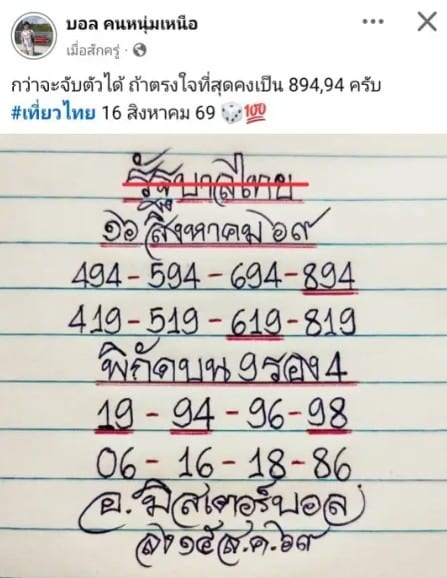 บอล คนหนุ่มเหนือ
เมื่อสักครู่ ·
กว่าจะจับตัวได้ ถ้าตรงใจที่สุดคงเป็น 894,94 ครับ
#เที่ยวไทย 16 สิงหาคม 69 🎲💯
รัฐบาลไทย
๑๖ สิงหาคม ๖๙
494-594-694-894
419-519-619-819
พิกัดบน 9 รอง 4
19 - 94 - 96 - 98
06 - 16 - 18 - 86
อ. มิสเตอร์บอล
ลง ๑๕ ส.ค. ๖๙